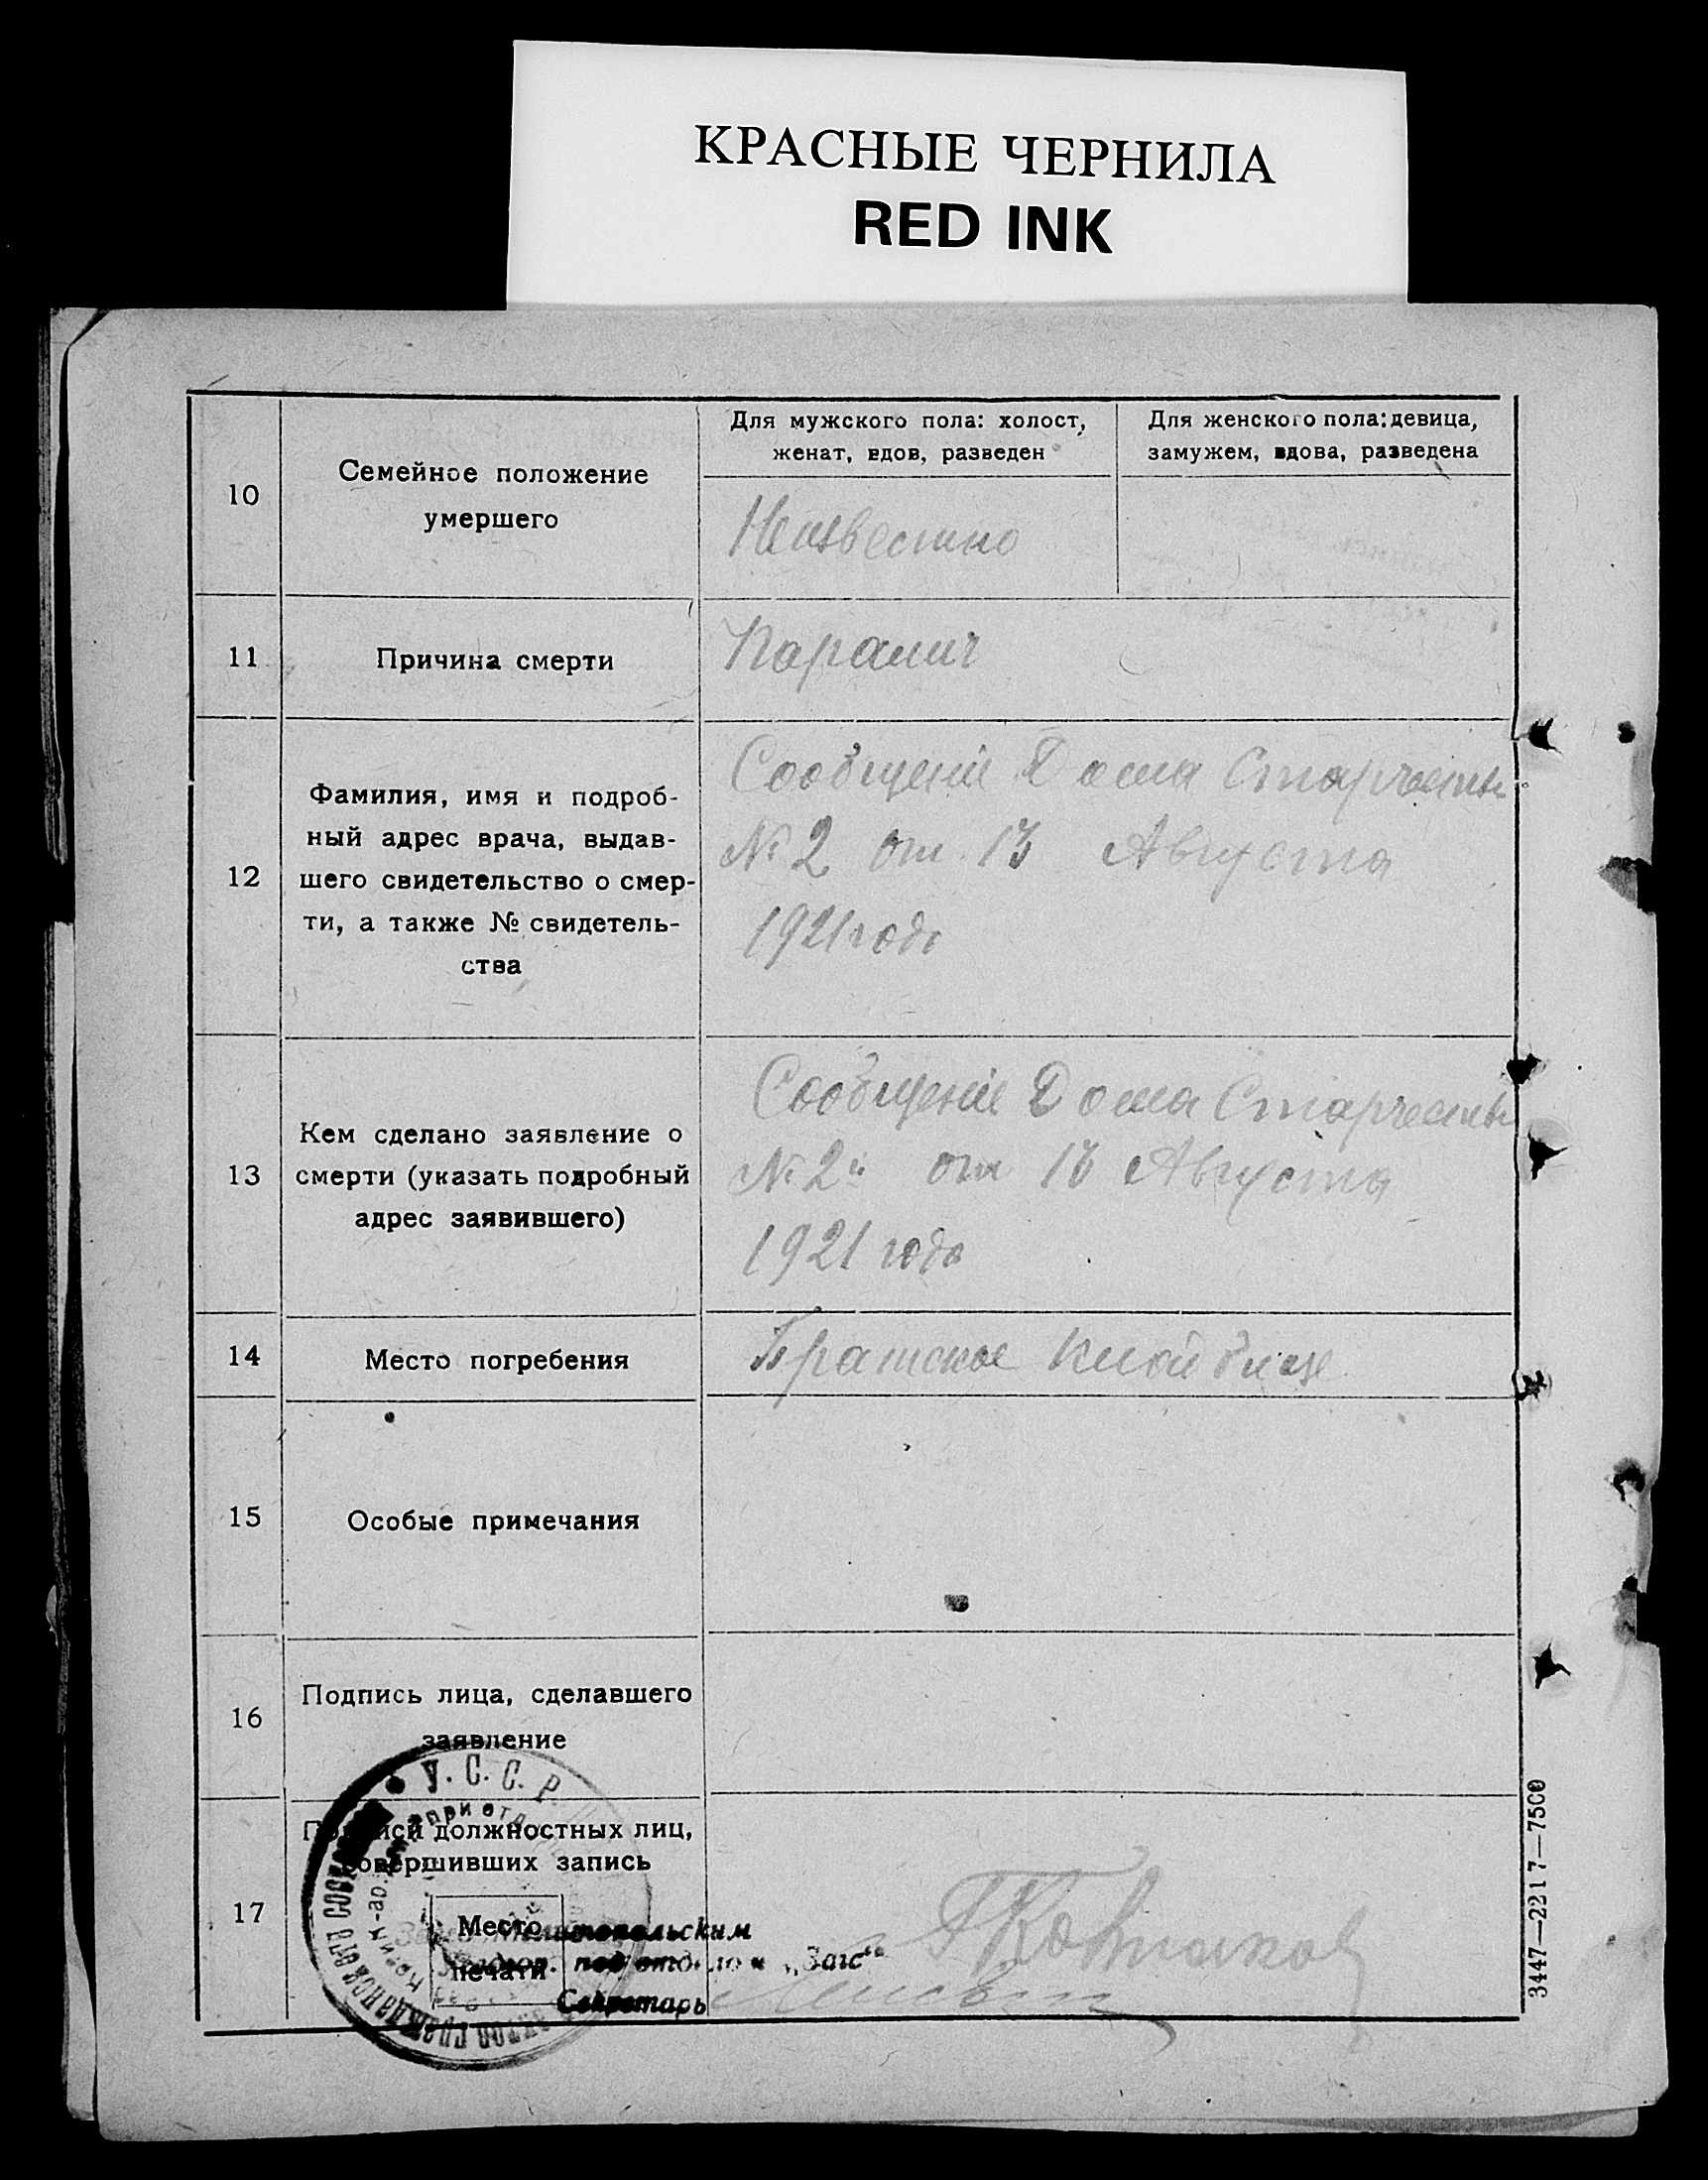 КРАСНЫЕ ЧЕРНИЛА
RED INK
10
Семейное положение
умершего
Для мужского пола: холост,
женат, вдов, разведен
Для женского пола: девица,
замужем, вдова, разведена
Неизвестно
11
Причина смерти
Паралич
12
Фамилия, имя и подроб-
ный адрес врача, выдав-
шего свидетельство о смер-
ти, а также № свидетель-
ства
Сообщение Дома Старчества
№ 2 от 13 Августа
1921 года
13
Кем сделано заявление о
смерти (указать подробный
адрес заявившего)
Сообщение Дома Старчества
№ 2 от 13 Августа
1921 года
14
Место погребения
Братское
15
Особые примечания
16
Подпись лица, сделавшего
заявление
17
Подписи должностных лиц,
совершивших запись
Место
печати
У. С. С. Р.
при отд
Мелитопольским
подотделом „Загс“
Секретарь
3447—2217—7500